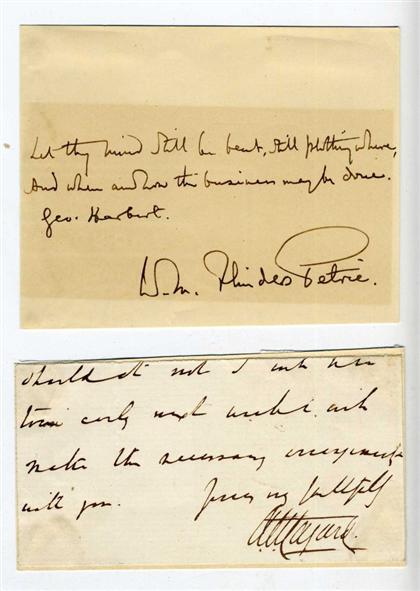 Let thy mind still be bent, still plotting where,
And when and how the business may be done.
Geo. Herbert.
W. M. Flinders Petrie.
should it not I
town early next week &
make the necessary arrangements
with you. yours very faithfully
A.H. Layard.